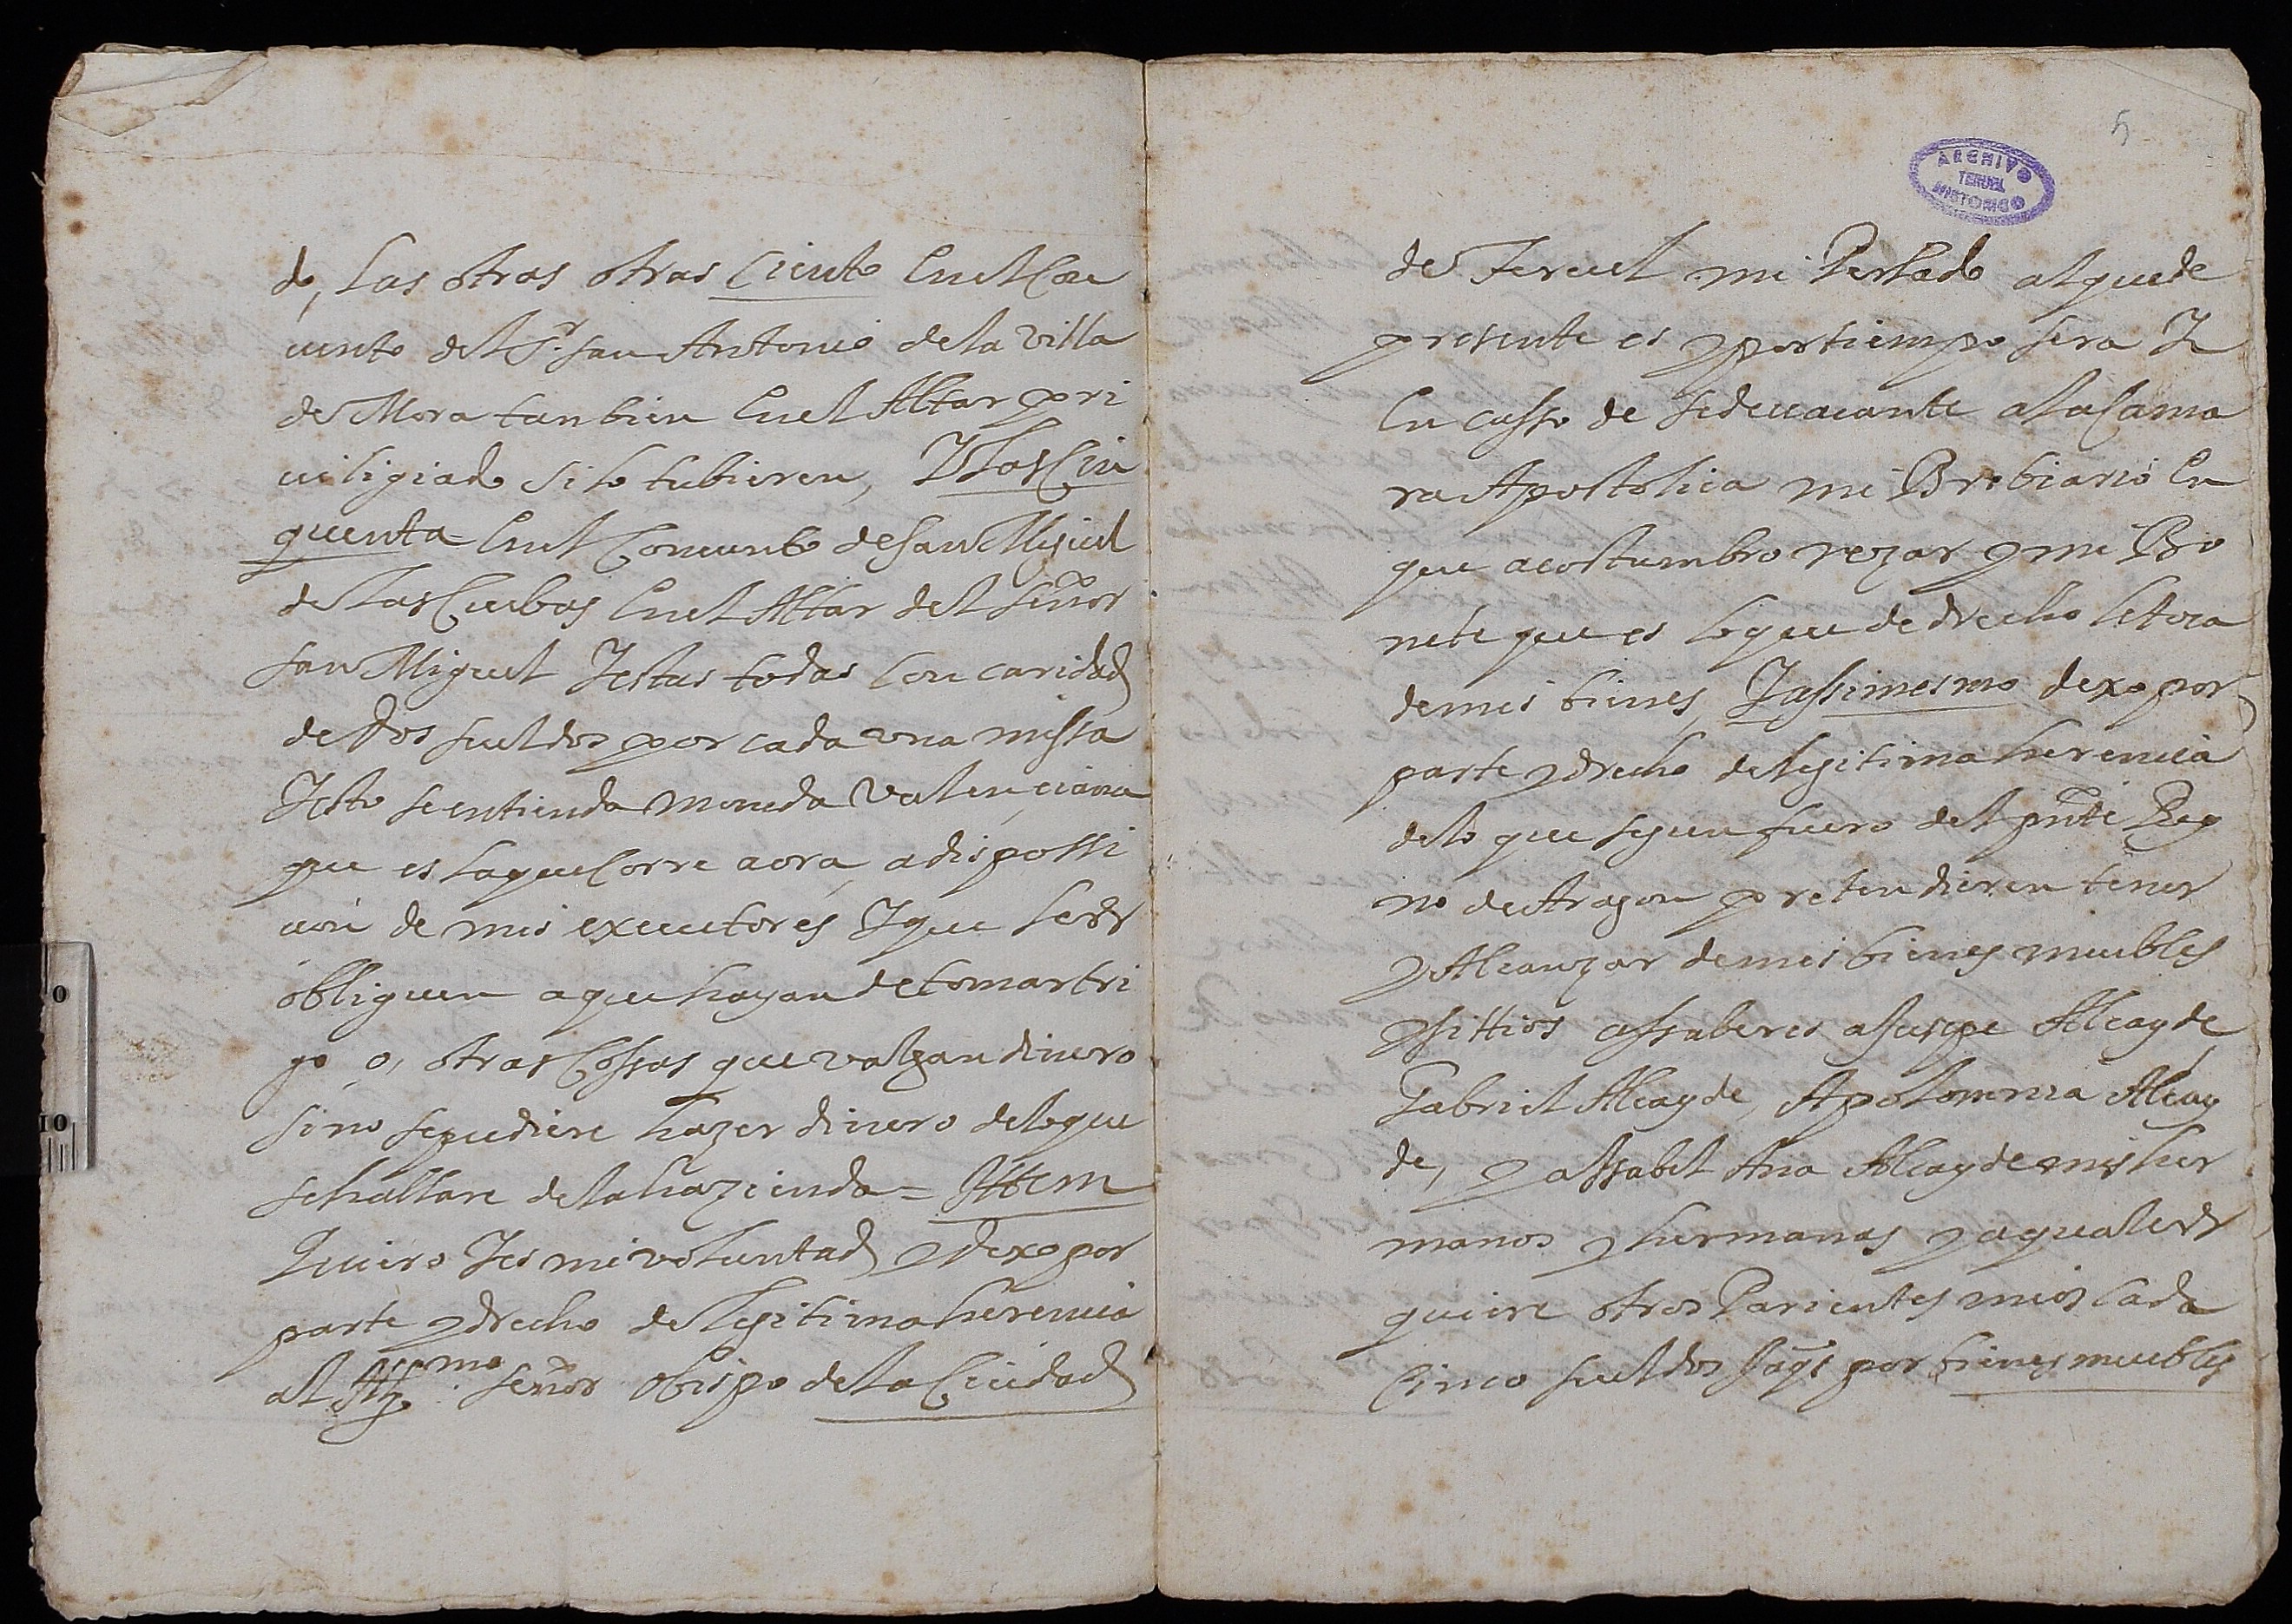 do, las otras otras ciento en el Con
uento del Sr. san Antonio de la villa
de Mora tanbien en el Altar pri
uiligiado si lo tubieren, Y las Cin
quenta en el Conuento de san Miguel
de las Cuebas en el Altar del señor
san Miguel Y estas todas con caridad
de dos sueldos por cada vna missa
Y esto se entienda moneda valenciana
que es la que corre aora, a dispossi
cion de mis executores Y que se les
obliguen a que hayan de tomar tri
go o, otras Cossas que valgan dinero
si no se pudiere hazer dinero de lo que
se hallare de la hazienda = Ittem
Quiero Y es mi voluntad y dexo por
parte y drecho de legitima herencia
al Illmo. señor obispo de la Ciudad
5
ARCHIVO
TERUEL
HISTORICO
de Teruel mi Perlado al que de
presente es y por tiempo sera Y
en casso de sede uacante a la Cama
ra Apostolica mi Brebiario en
que acostumbro rezar y mi Bo
nete que es lo que de drecho le toca
de mis bienes, Y assimesmo dexo por
parte y drecho de legitima herencia
de lo que segun fuero del pnte Rey
no de Aragon pretendieren tener
y Alcanzar de mis bienes muebles
y sittios assaber es a Jusepe Alcayde
Gabriel Alcayde, Apolonnia Alcay
de, y a Issabel Ana Alcayde mis her
manos y hermanas y a qualesr
quiere otros Parientes mios cada
cinco sueldos Jaqs por bienes muebles